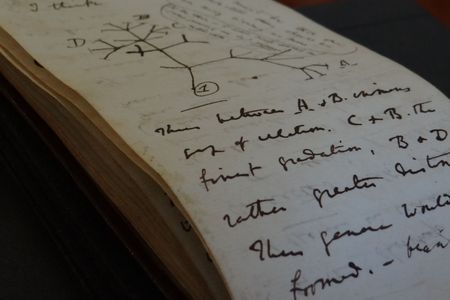 I think
B
C
D
A
1
Thus between A & B. immense
gap of relation. C & B. the
finest gradation, B & D
rather greater distinc
Thus genera would
formed. – bear